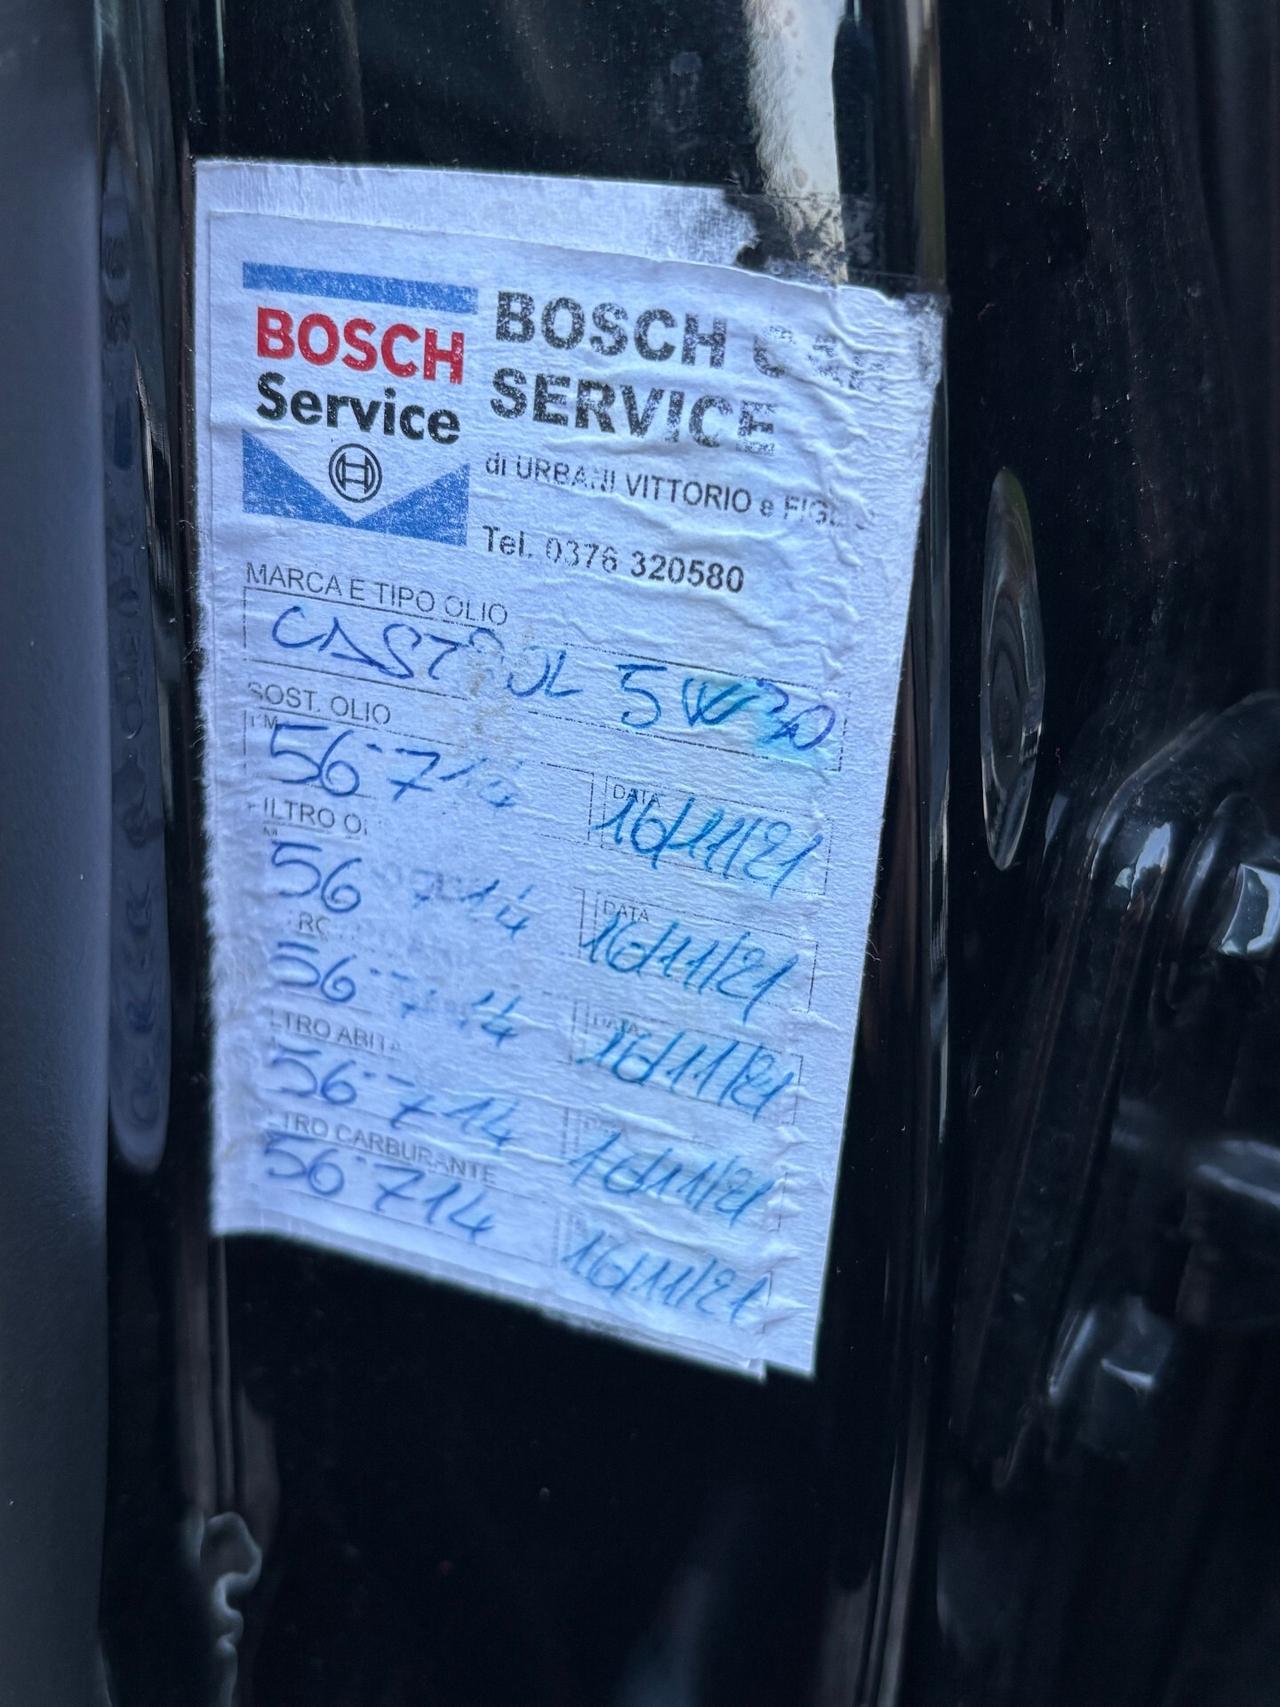 BOSCH
Service
BOSCH
SERVICE
di URBANI VITTORIO e
Tel. 0376 320580
MARCA E TIPO OLIO
CASTROL 5W30
SOST. OLIO
KM
56714
DATA
16/11/21
56 714
DATA
16/11/21
56 714
DATA
16/11/21
56 714
16/11/21
CARBURANTE
56714
16/11/21